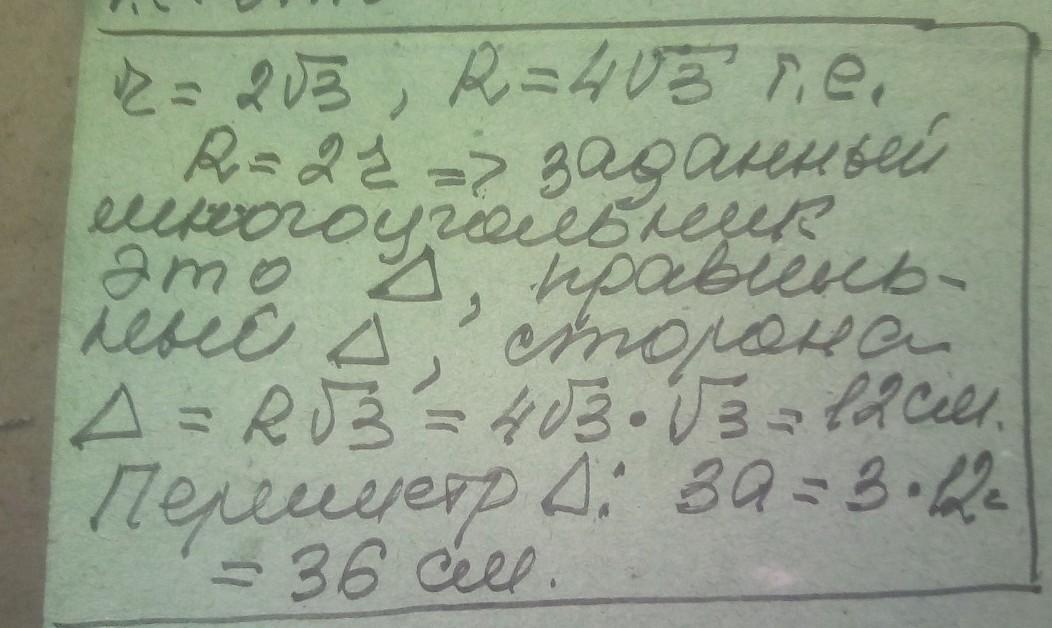 r = 2√3, R = 4√3 т.е.
R = 2r => заданный
многоугольник
это Δ, правиль-
ный Δ, сторона
Δ = R√3 = 4√3 · √3 = 12 см.
Периметр Δ: 3a = 3 · 12 =
= 36 см.